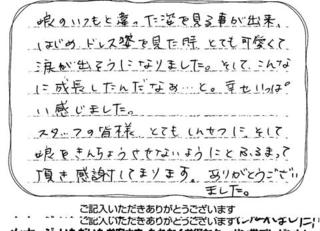 娘のいつもと違った姿で見る事が出来、
はじめ ドレス姿で見た時 とても可愛くて
涙が出そうになりました。そして、こんな
に成長したんだなぁ…と。幸せいっぱ
い感じました。
スタッフの皆様、とても しんせつに、そして
娘をきんちょうさせないようにとふるまって
頂き感謝してまります。ありがとうござい
ました。
ご記入いただきありがとうございます
ご記入いただきありがとうございます